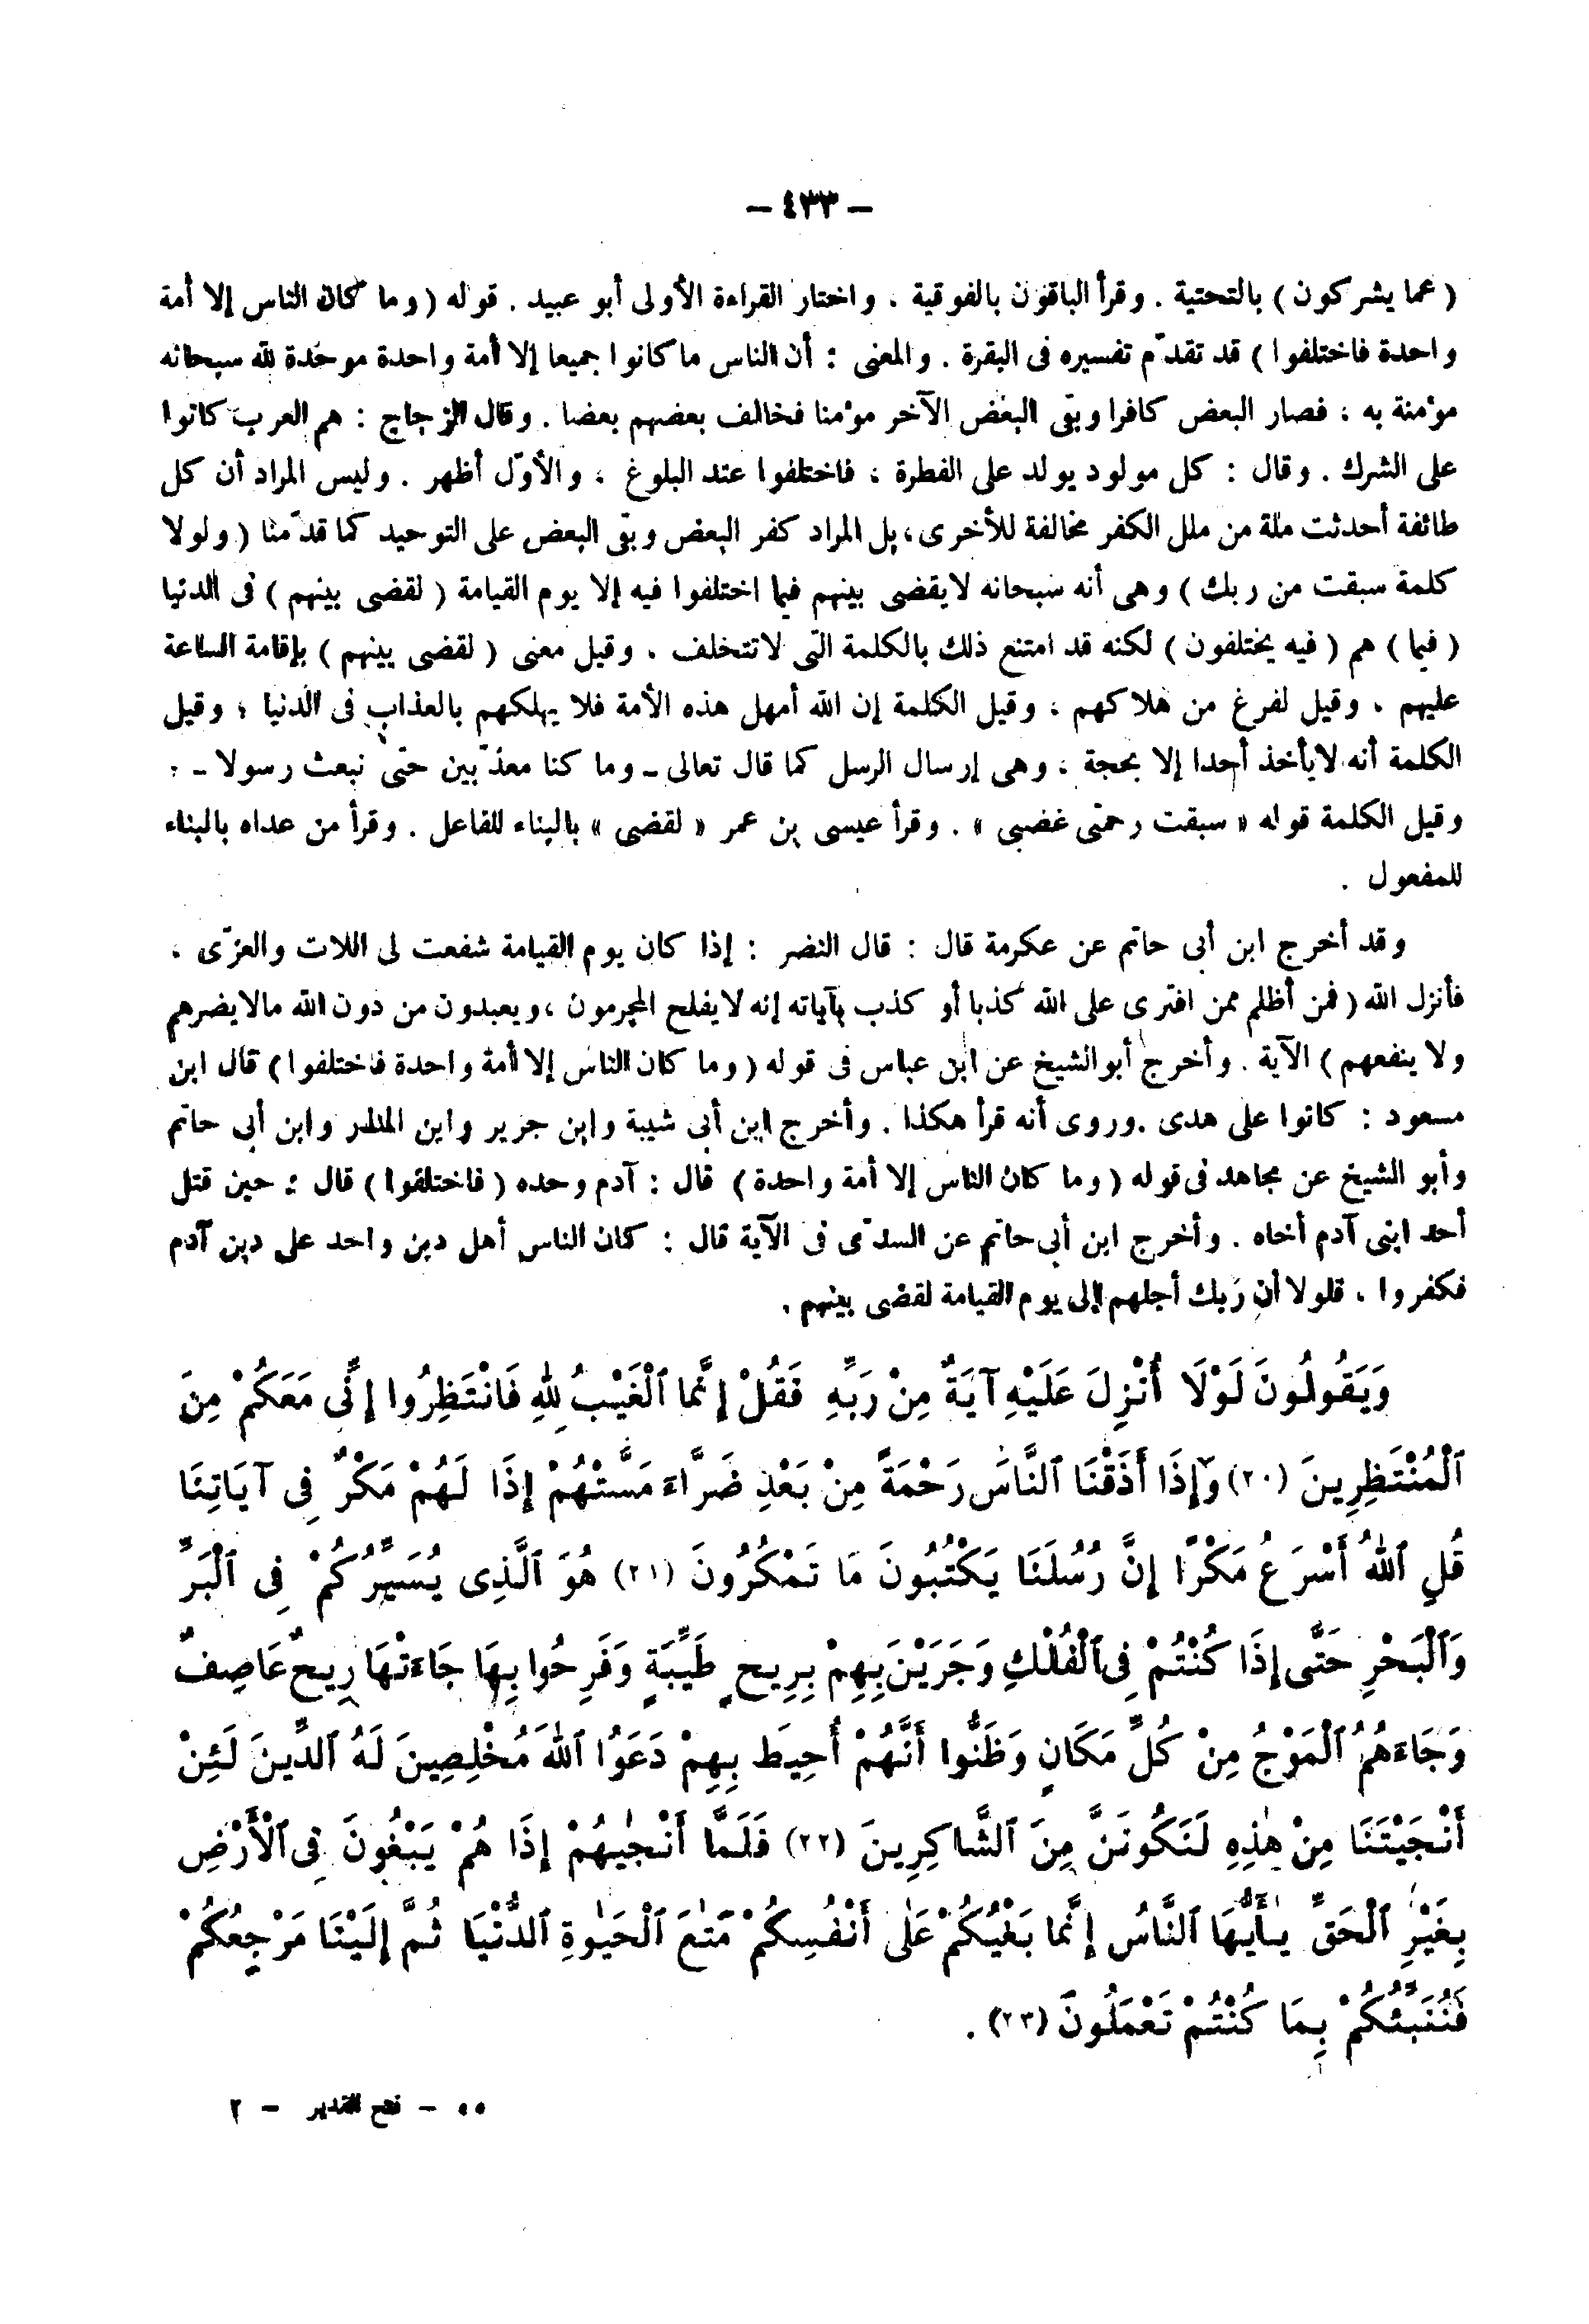 – ٤٣٣ –
( عما يشركون ) بالتحتية . وقرأ الباقون بالفوقية ، واختار القراءة الأولى أبو عبيد . قوله ( وما كان الناس إلا أمة
واحدة فاختلفوا ) قد تقدّم تفسيره فى البقرة . والمعنى : أن الناس ما كانوا جميعا إلا أمة واحدة موحّدة لله سبحانه
مؤمنة به ، فصار البعض كافرا وبقى البعض الآخر مؤمنا فخالف بعضهم بعضا . وقال الزجاج : هم العرب كانوا
على الشرك . وقال : كل مولود يولد على الفطرة ، فاختلفوا عند البلوغ ، والأوّل أظهر . وليس المراد أن كل
طائفة أحدثت ملة من ملل الكفر مخالفة للأخرى ، بل المراد كفر البعض وبقى البعض على التوحيد كما قدّمنا ( ولولا
كلمة سبقت من ربك ) وهى أنه سبحانه لايقضى بينهم فيما اختلفوا فيه إلا يوم القيامة ( لقضى بينهم ) فى الدنيا
( فيما ) هم ( فيه يختلفون ) لكنه قد امتنع ذلك بالكلمة التى لاتتخلف ، وقيل معنى ( لقضى بينهم ) بإقامة الساعة
عليهم ، وقيل لفرغ من هلاكهم ، وقيل الكلمة إن الله أمهل هذه الأمة فلا يهلكهم بالعذاب فى الدنيا ، وقيل
الكلمة أنه لايأخذ أحدا إلا بحجة ، وهى إرسال الرسل كما قال تعالى ــ وما كنا معذّبين حتى نبعث رسولا ــ .
وقيل الكلمة قوله « سبقت رحمتى غضبى » . وقرأ عيسى بن عمر « لقضى » بالبناء للفاعل . وقرأ من عداه بالبناء
للمفعول .
وقد أخرج ابن أبى حاتم عن عكرمة قال : قال النضر : إذا كان يوم القيامة شفعت لى اللات والعزّى ،
فأنزل الله ( فمن أظلم ممن افترى على الله كذبا أو كذب بآياته إنه لايفلح المجرمون ، ويعبدون من دون الله مالا يضرهم
ولا ينفعهم ) الآية . وأخرج أبو الشيخ عن ابن عباس فى قوله ( وما كان الناس إلا أمة واحدة فاختلفوا ) قال ابن
مسعود : كانوا على هدى . وروى أنه قرأ هكذا . وأخرج ابن أبى شيبة وابن جرير وابن المنذر وابن أبى حاتم
وأبو الشيخ عن مجاهد فى قوله ( وما كان الناس إلا أمة واحدة ) قال : آدم وحده ( فاختلفوا ) قال : حين قتل
أحد ابنى آدم أخاه . وأخرج ابن أبى حاتم عن السدّى فى الآية قال : كان الناس أهل دين واحد على دين آدم
فكفروا ، فلولا أن ربك أجلهم إلى يوم القيامة لقضى بينهم .
وَيَقُولُونَ لَوْلَا أُنْزِلَ عَلَيْهِ آيَةٌ مِنْ رَبِّهِ فَقُلْ إِنَّمَا ٱلْغَيْبُ لِلهِ فَانْتَظِرُوا إِنِّى مَعَكُمْ مِنَ
ٱلْمُنْتَظِرِينَ (٢٠) وَإِذَا أَذَقْنَا ٱلنَّاسَ رَحْمَةً مِنْ بَعْدِ ضَرَّاءَ مَسَّتْهُمْ إِذَا لَهُمْ مَكْرٌ فِى آيَاتِنَا
قُلِ ٱللهُ أَسْرَعُ مَكْرًا إِنَّ رُسُلَنَا يَكْتُبُونَ مَا تَمْكُرُونَ (٢١) هُوَ ٱلَّذِى يُسَيِّرُكُمْ فِى ٱلْبَرِّ
وَٱلْبَحْرِ حَتَّى إِذَا كُنْتُمْ فِى ٱلْفُلْكِ وَجَرَيْنَ بِهِمْ بِرِيحٍ طَيِّبَةٍ وَفَرِحُوا بِهَا جَاءَتْهَا رِيحٌ عَاصِفٌ
وَجَاءَهُمُ ٱلْمَوْجُ مِنْ كُلِّ مَكَانٍ وَظَنُّوا أَنَّهُمْ أُحِيطَ بِهِمْ دَعَوُا ٱللهَ مُخْلِصِينَ لَهُ ٱلدِّينَ لَئِنْ
أَنْجَيْتَنَا مِنْ هٰذِهِ لَنَكُونَنَّ مِنَ ٱلشَّاكِرِينَ (٢٢) فَلَمَّا أَنْجٰيهُمْ إِذَا هُمْ يَبْغُونَ فِى ٱلْأَرْضِ
بِغَيْرِ ٱلْحَقِّ يٰأَيُّهَا ٱلنَّاسُ إِنَّمَا بَغْيُكُمْ عَلٰى أَنْفُسِكُمْ مَتٰعَ ٱلْحَيٰوةِ ٱلدُّنْيَا ثُمَّ إِلَيْنَا مَرْجِعُكُمْ
فَنُنَبِّئُكُمْ بِمَا كُنْتُمْ تَعْمَلُونَ (٢٣) .
٥٥ – فتح القدير – ٢